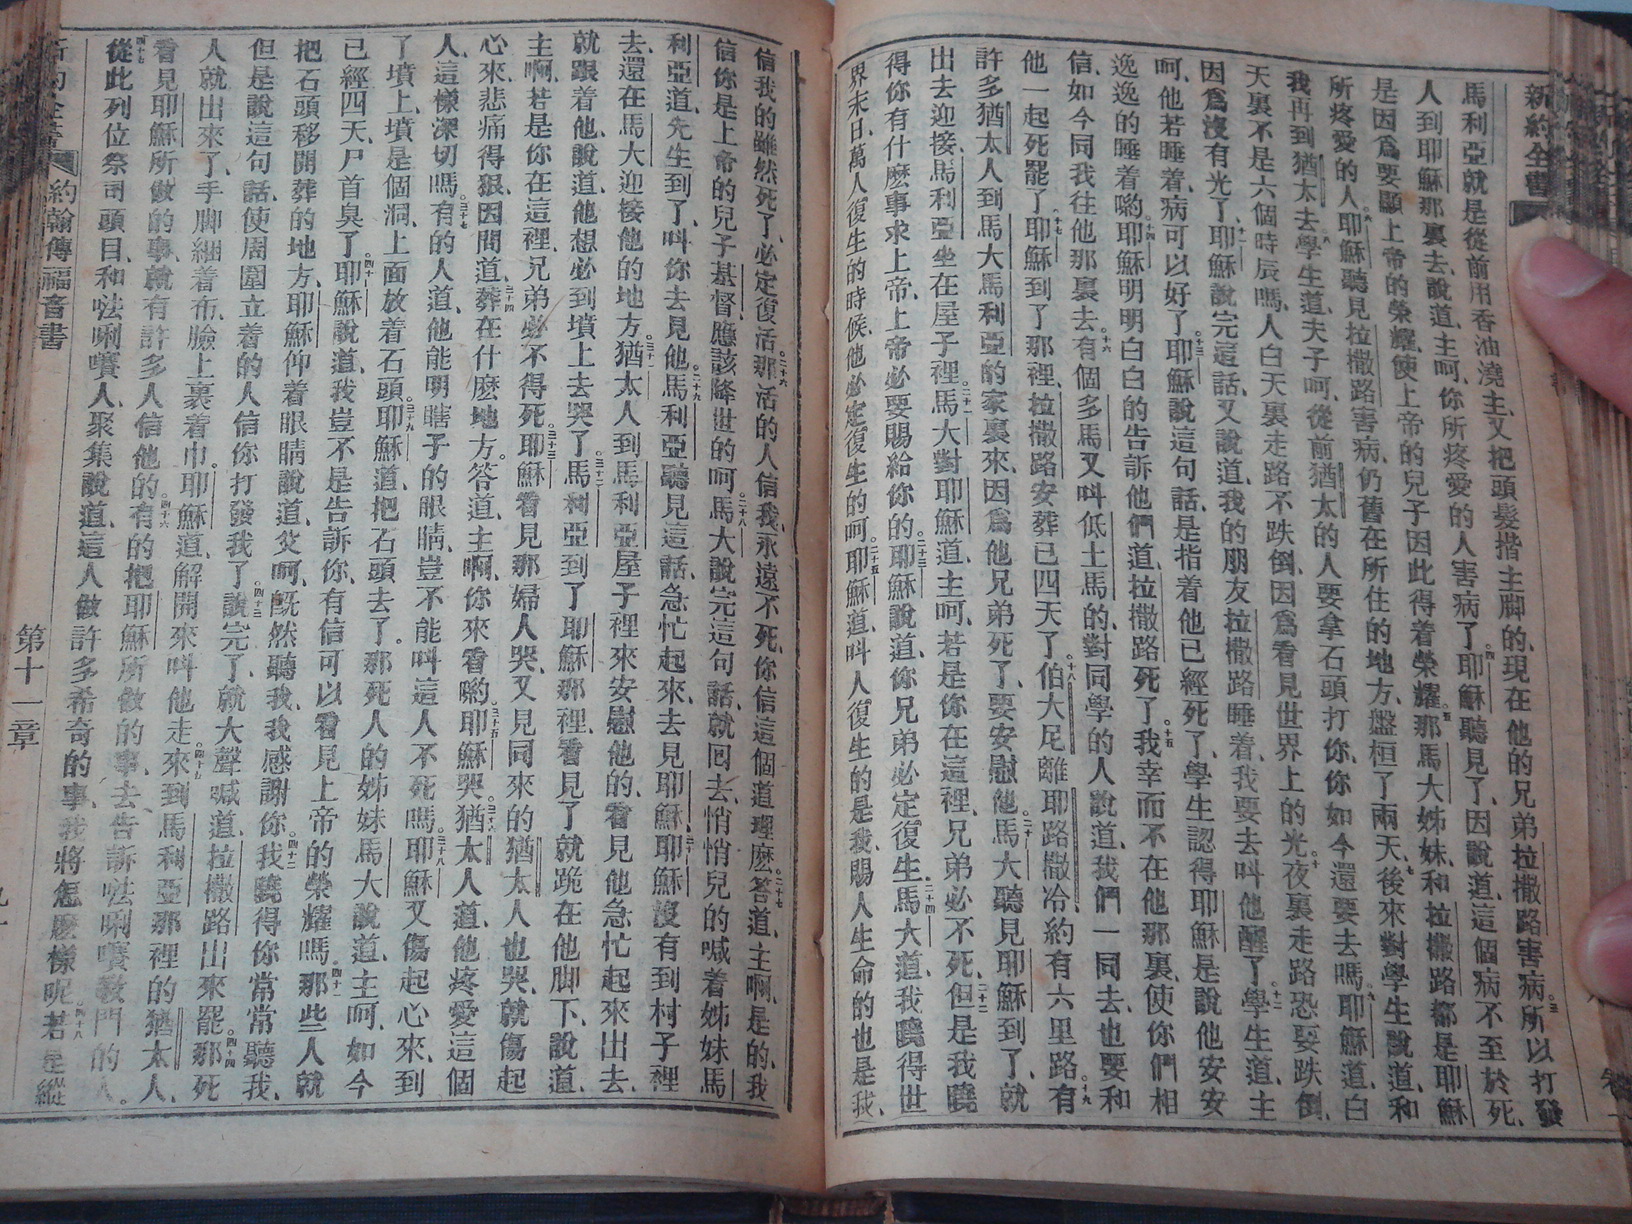 新約全書
馬利亞就是從前用香油澆主、又把頭髮揩主脚的、現在他的兄弟拉撒路害病。三所以打發
人到耶穌那裏去、說道、主呵、你所疼愛的人害病了。四耶穌聽見了、因說道、這個病不至於死、
是因爲要顯上帝的榮耀、使上帝的兒子因此得着榮耀。五那馬大姊妹、和拉撒路都是耶穌
所疼愛的人。六耶穌聽見拉撒路害病、仍舊在所住的地方、盤桓了兩天。七後來對學生說道、和
我再到猶太去。八學生道、夫子呵、從前猶太的人要拿石頭打你、你如今還要去嗎。九耶穌道、白
天裏不是六個時辰嗎、人白天裏走路不跌倒、因爲看見世界上的光。十夜裏走路恐要跌倒、
因爲沒有光了。十一耶穌說完這話、又說道、我的朋友拉撒路睡着、我要去叫他醒了。十二學生道、主
呵、他若睡着、病可以好了。十三耶穌說這句話、是指着他已經死了、學生認得耶穌是說他安安
逸逸的睡着喲。十四耶穌明明白白的告訴他們道、拉撒路死了。十五我幸而不在他那裏、使你們相
信、如今同我往他那裏去。十六有個多馬又叫低土馬的、對同學的人說道、我們一同去、也要和
他一起死罷了。十七耶穌到了那裡、拉撒路安葬已四天了。十八伯大尼離耶路撒冷、約有六里路。十九有
許多猶太人到馬大馬利亞的家裏來、因爲他兄弟死了、要安慰他。二十馬大聽見耶穌到了、就
出去迎接、馬利亞坐在屋子裡。二十一馬大對耶穌道、主呵、若是你在這裡、兄弟必不死。二十二但是我曉
得你有什麽事求上帝、上帝必要賜給你的。二十三耶穌說道、你兄弟必定復生。二十四馬大道、我曉得世
界末日、萬人復生的時候、他必定復生的呵。二十五耶穌道、叫人復生的是我、賜人生命的也是我、
信我的雖然死了、必定復活。二十六那活的人信我、永遠不死、你信這個道理麽。二十七答道、主啊、是的、我
信你是上帝的兒子基督、應該降世的呵。二十八馬大說完這句話、就回去、悄悄兒的喊着姊妹馬
利亞道、先生到了、叫你去見他。二十九馬利亞聽見這話、急忙起來、去見耶穌。三十耶穌沒有到村子裡
去、還在馬大迎接他的地方。三十一猶太人到馬利亞屋子裡來安慰他的、看見他急忙起來出去、
就跟着他、說道、他想必到墳上去哭了。三十二馬利亞到了耶穌那裡、看見了就跪在他脚下、說道、
主啊、若是你在這裡、兄弟必不得死。三十三耶穌看見那婦人哭、又見同來的猶太人也哭、就傷起
心來、悲痛得狠、因問道、三十四葬在什麽地方。答道、主啊、你來看喲。三十五耶穌哭。三十六猶太人道、他疼愛這個
人、這樣深切嗎。三十七有的人道、他能明瞎子的眼睛、豈不能叫這人不死嗎。三十八耶穌又傷起心來、到
了墳上、墳是個洞、上面放着石頭。三十九耶穌道、把石頭去了。那死人的姊妹馬大說道、主呵、如今
已經四天、尸首臭了。四十耶穌說道、我豈不是告訴你、有信可以看見上帝的榮耀嗎。四十一那些人就
把石頭移開葬的地方、耶穌仰着眼睛說道、父呵、既然聽我、我感謝你。四十二我曉得你常常聽我、
但是說這句話、使周圍立着的人信你打發我了。四十三說完了、就大聲喊道、拉撒路出來罷。四十四那死
人就出來了、手脚綑着布、臉上裹着巾。耶穌道、解開來叫他走。四十五來到馬利亞那裡的猶太人、
看見耶穌所做的事、就有許多人信他的。四十六有的把耶穌所做的事、去告訴㗲唎㘔敎門的人。
四十七從此列位祭司頭目、和㗲唎㘔人、聚集說道、這人做許多希奇的事、我將怎麽樣呢。四十八若是縱
約翰傳福音書　第十一章